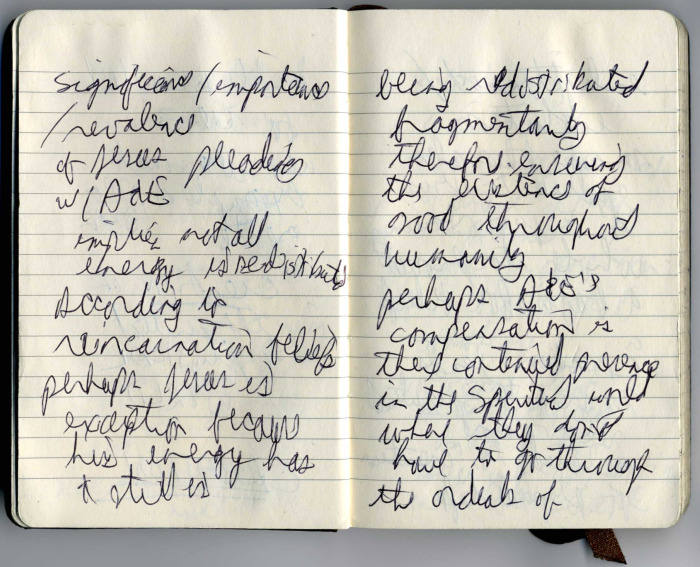 significans/importans
/revalenc
of jesus pleading
w/
implies not all
energy is redistributed
according to
reincarnation beliefs
perhaps jesus is
exception because
his energy has
& still is
being redistributed
fragmentarily
therefor ensuring
the existence of
good throughout
humanity
perhaps
compensation is
their continued presence
in the spiritual world
where they don't
have to go through
the ordeals of